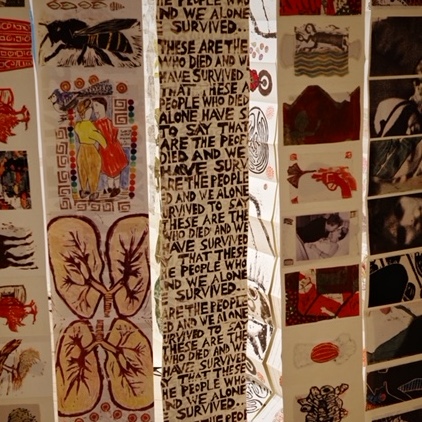 THE PEOPLE WHO
AND WE ALONE
SURVIVED..
THESE ARE THE
WHO DIED AND W
HAVE SURVIVED
THAT THESE A
PEOPLE WHO DIED
ALONE HAVE S
TO SAY THAT
ARE THE PEOP
DIED AND WE
HAVE SURV
ARE THE PEOPLE
D AND WE ALONE
RVIVED TO SAY
THESE ARE THE
WHO DIED AND WE
HAVE SURVIVED
THAT THESE
E PEOPLE WHO
ND WE ALONE
SURVIVED..
ARE THE PEOPLE
D AND WE ALONE
RVIVED TO SAY
THESE ARE THE
WHO DIED AND WE
HAVE SURVIVED
Y THAT THESE
HE PEOPLE WHO
ND WE ALONE
SURVIVED..
ARE THE PEOPL